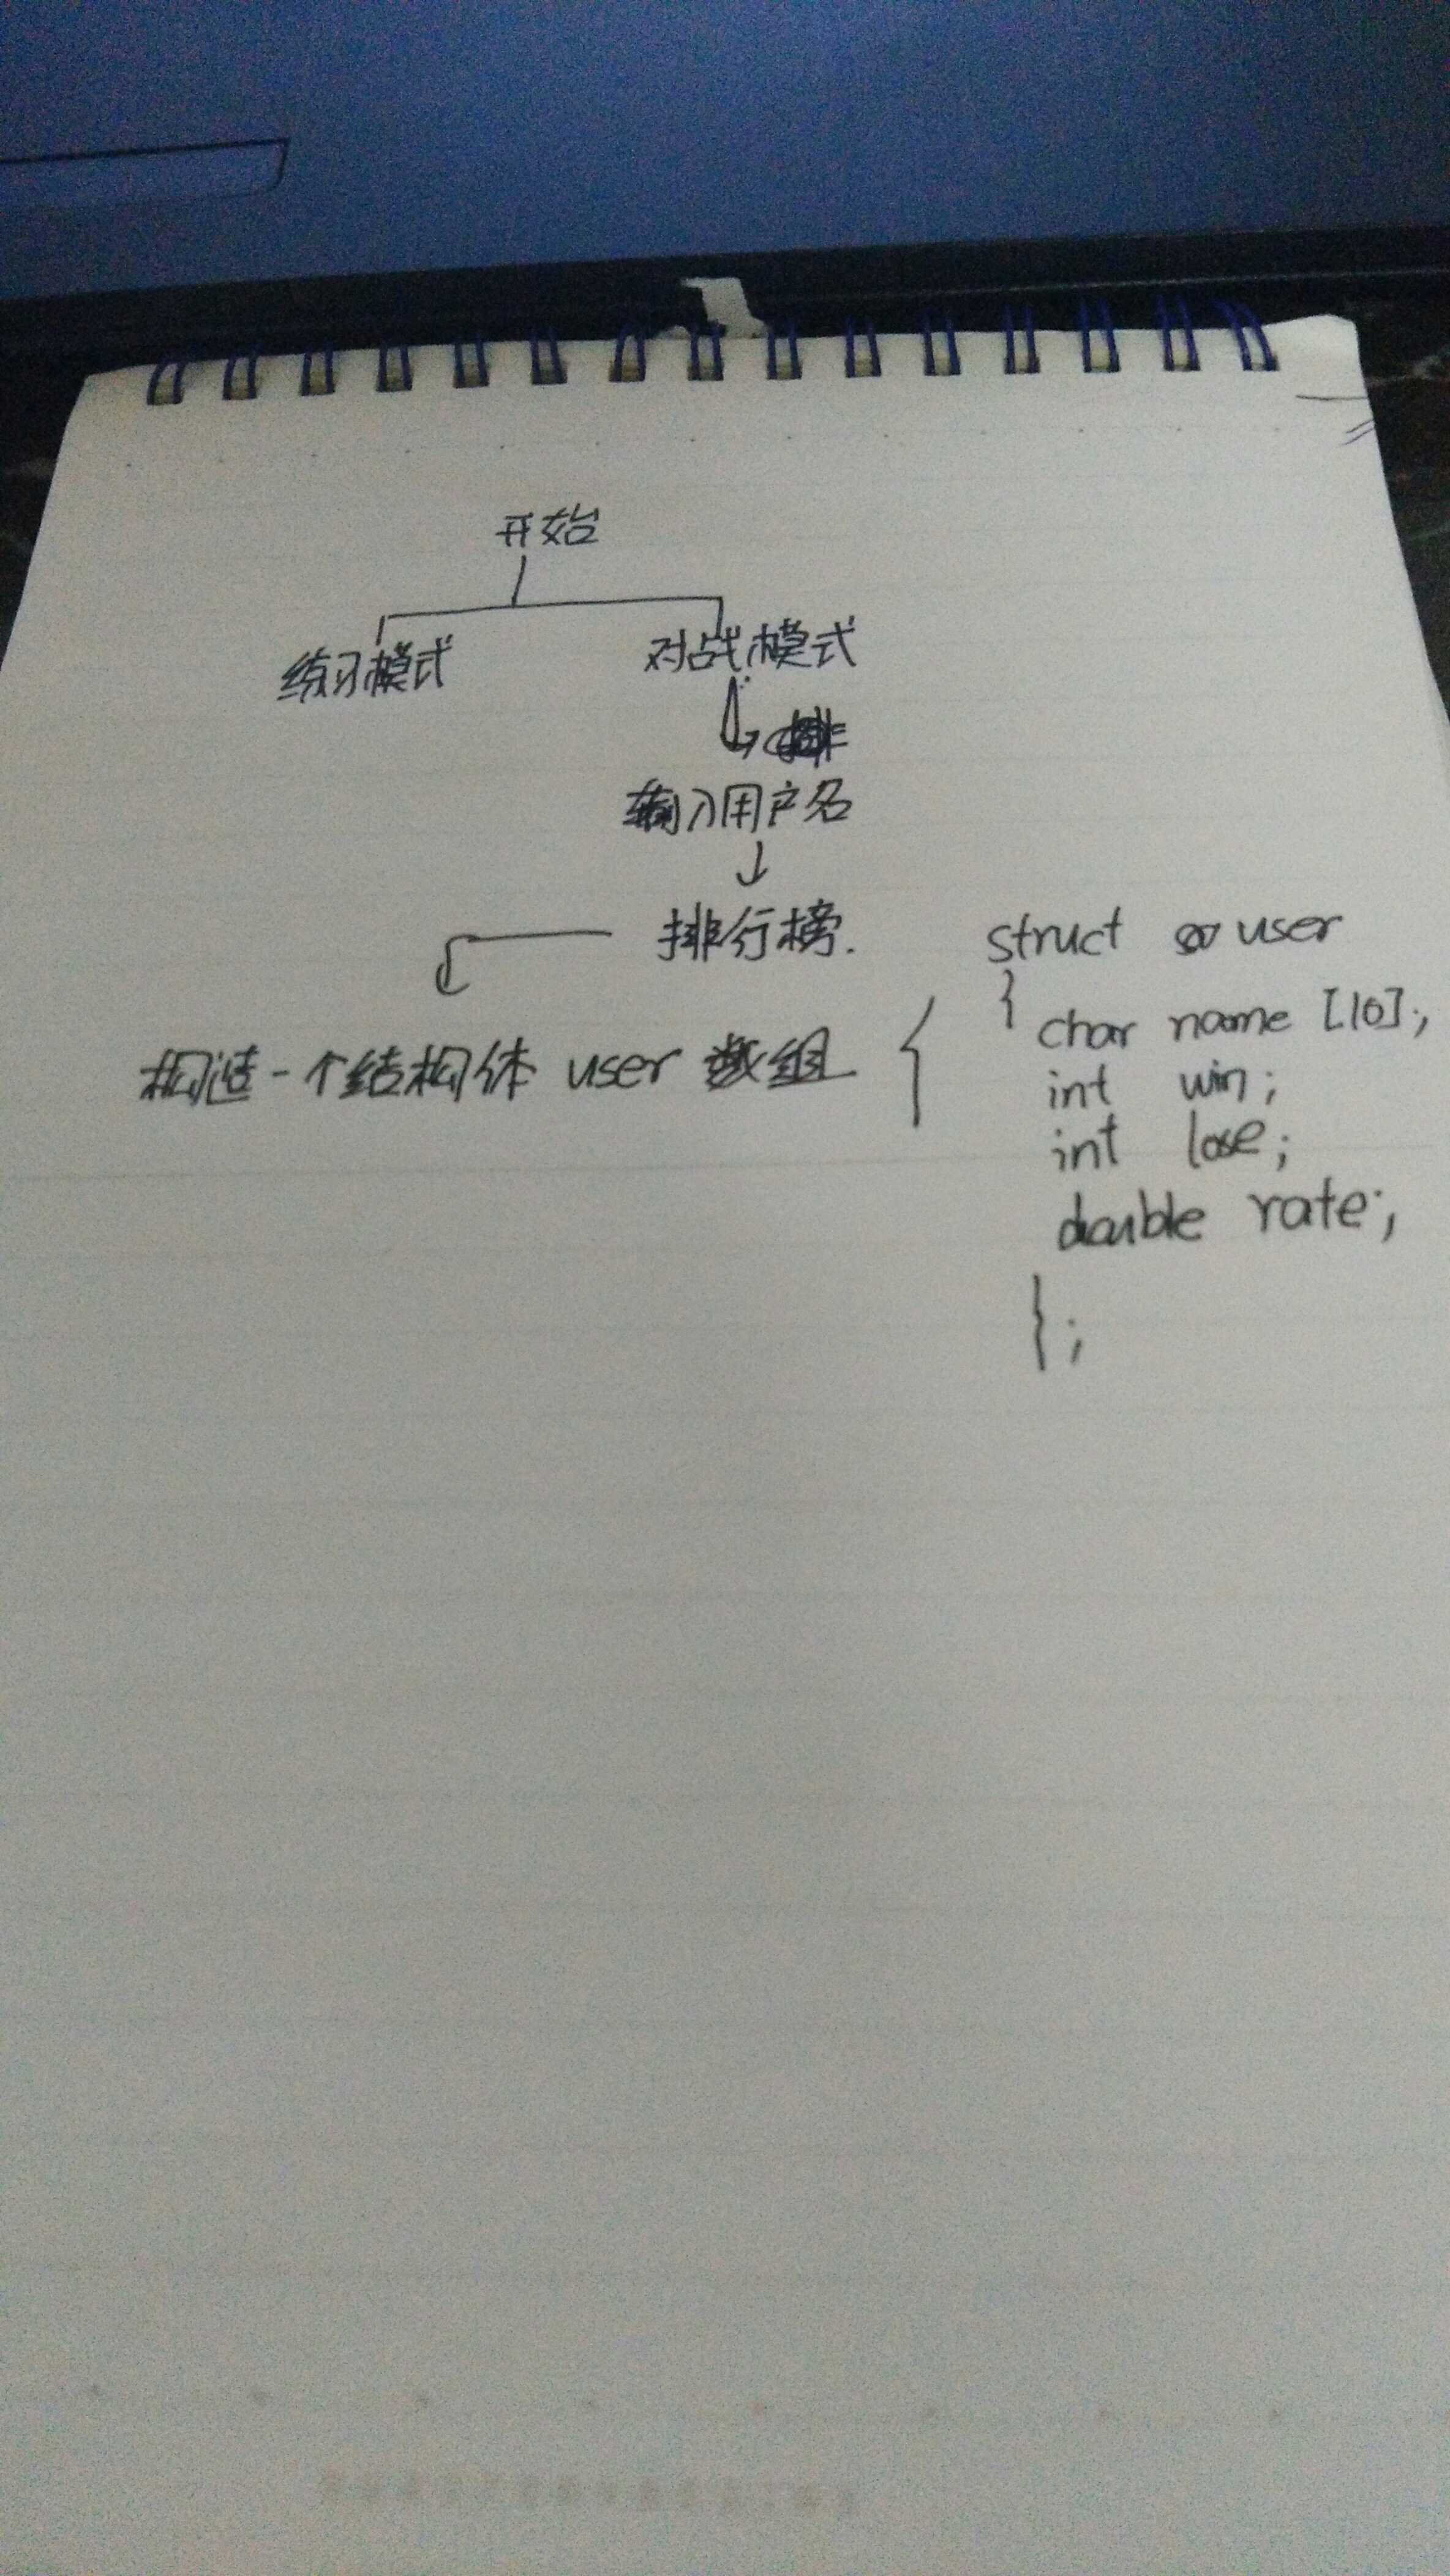 开始
练习模式 对战模式
输入用户名
排行榜.
构造一个结构体 user 数组
struct user
{
char name [10];
int win;
int lose;
double rate;
};